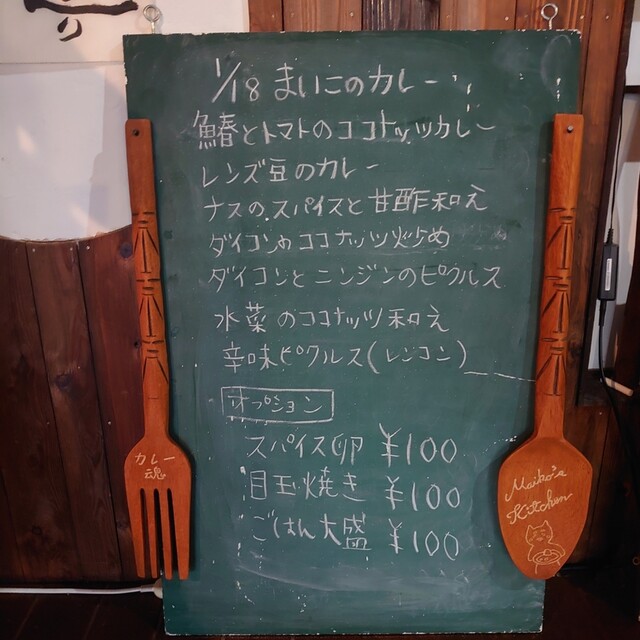 1/18 まいこのカレー
鰆とトマトのココナッツカレー
レンズ豆のカレー
ナスのスパイスと甘酢和え
ダイコンのココナッツ炒め
ダイコンとニンジンのピクルス
水菜のココナッツ和え
辛味ピクルス(レンコン)
オプション
スパイス卵 ¥100
目玉焼き ¥100
ごはん大盛 ¥100
カレー
魂
Maiko's
Kitchen